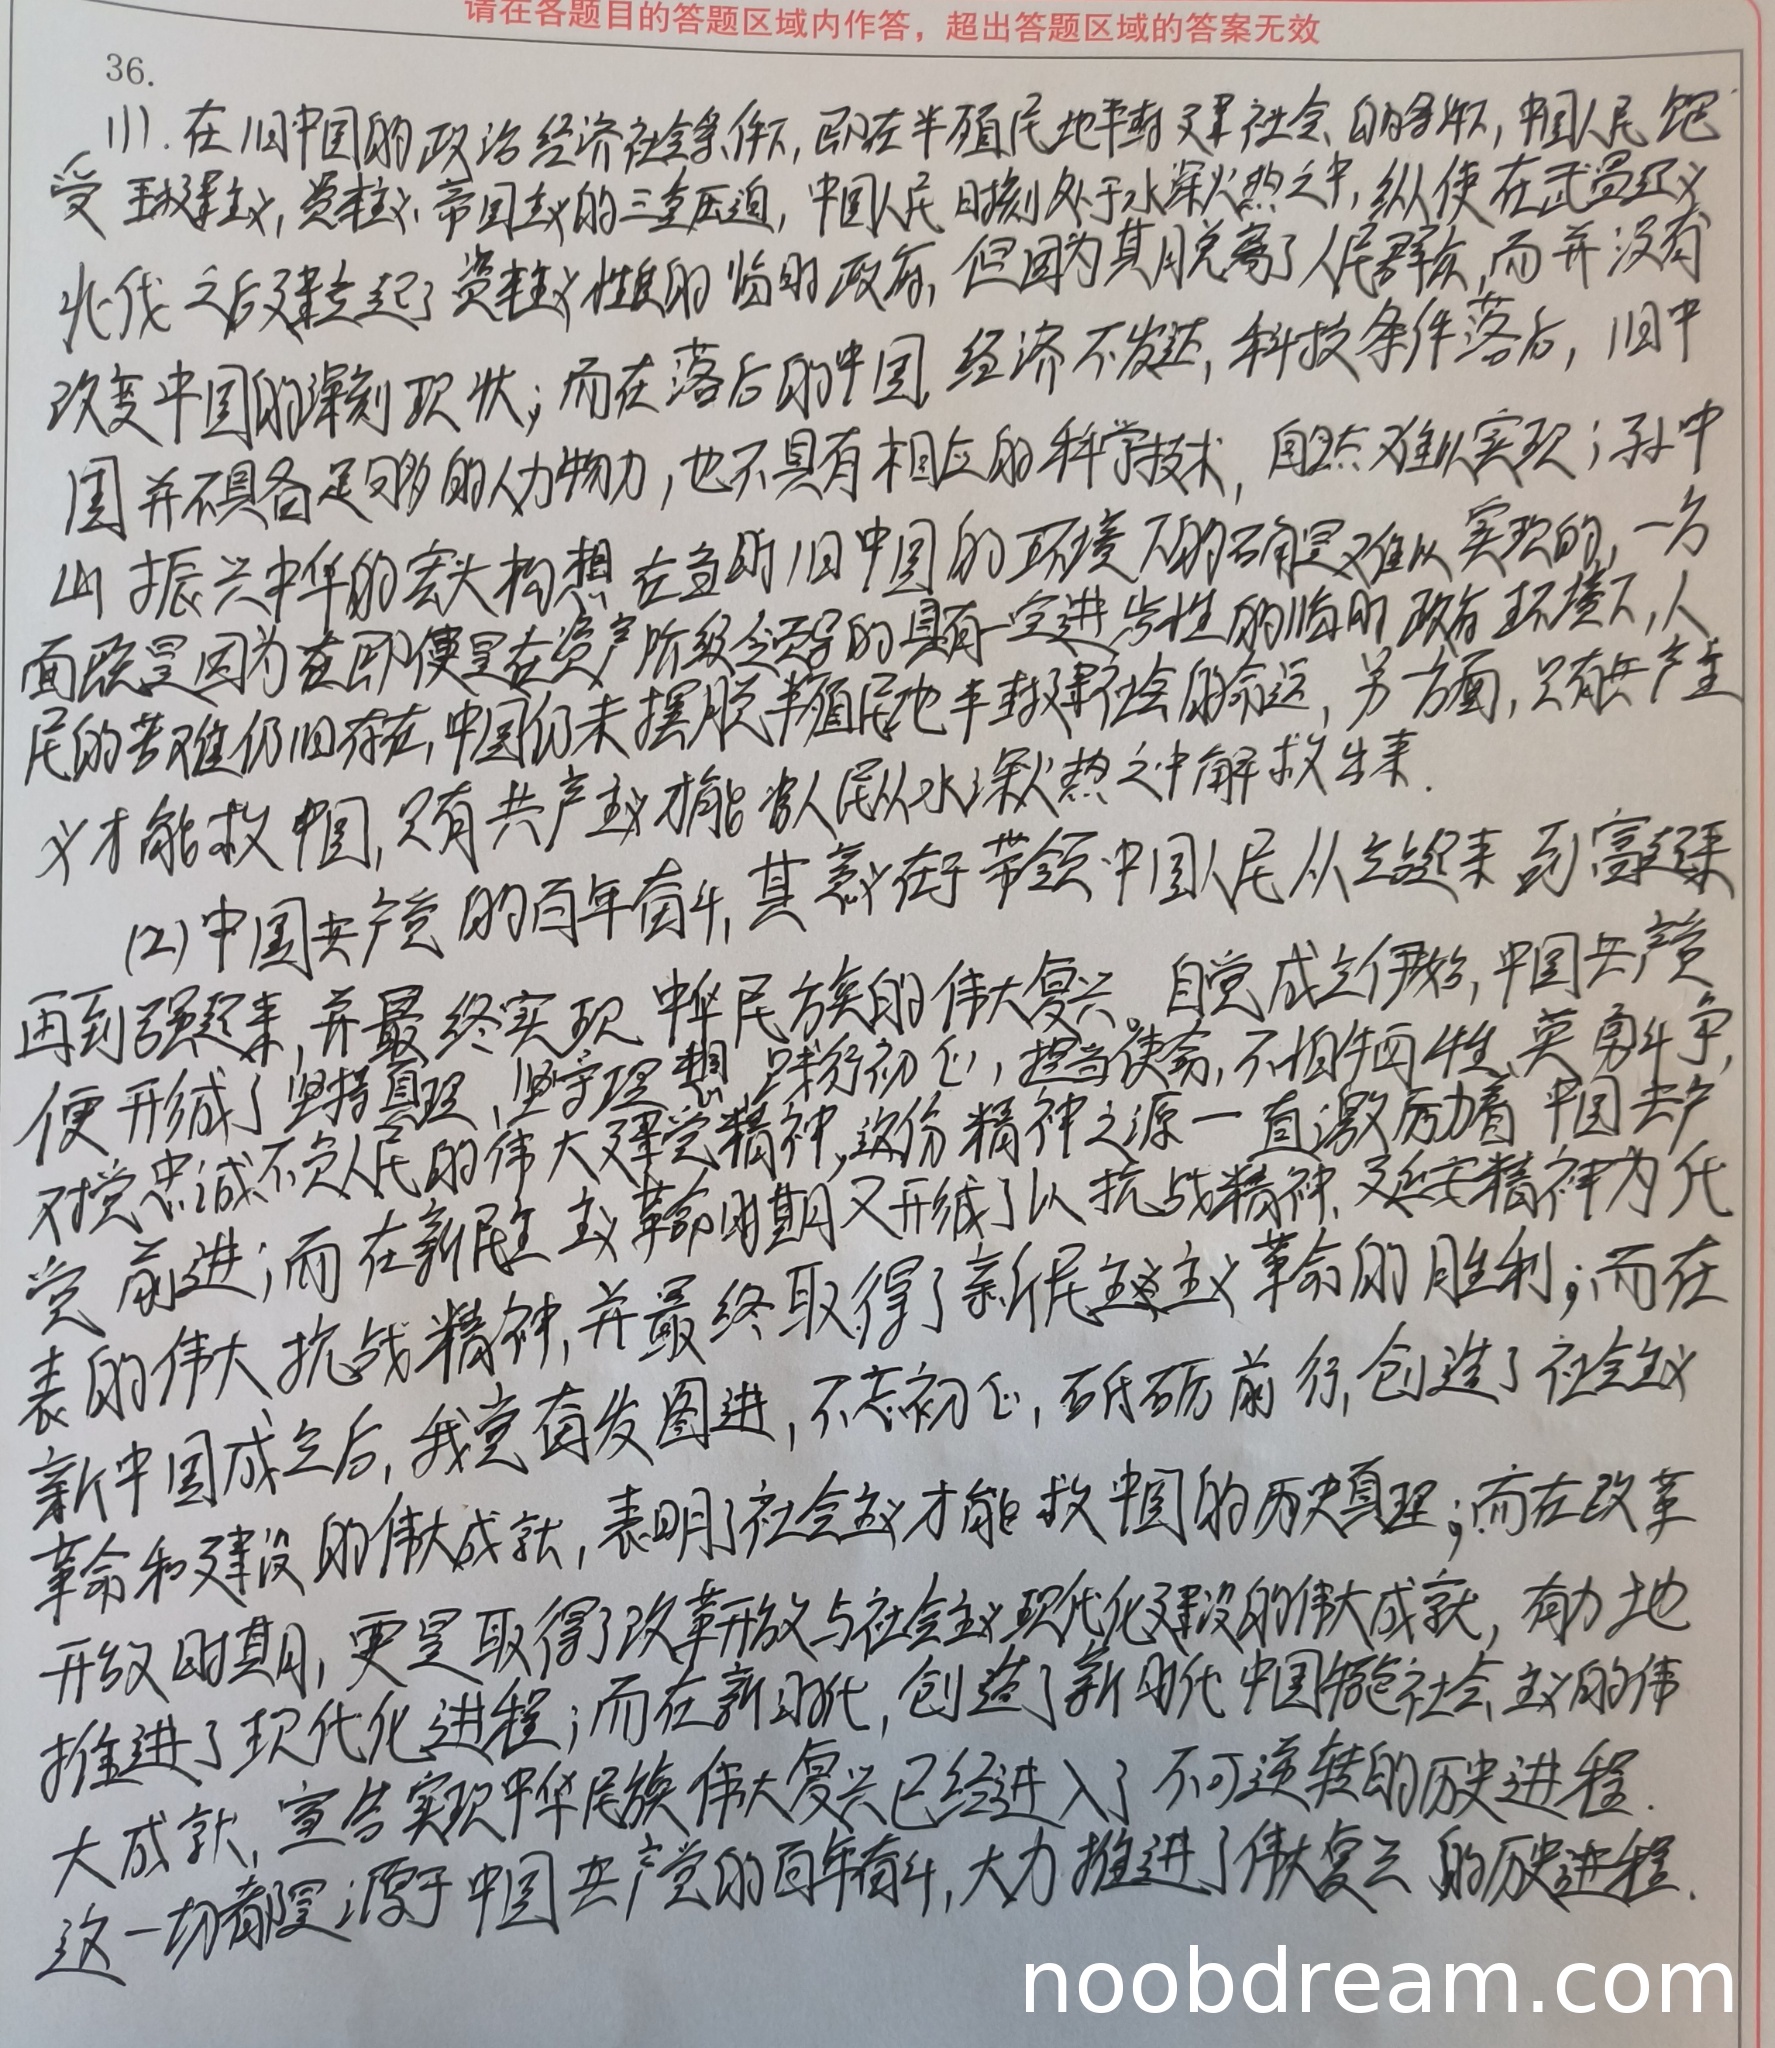 请在各题目的答题区域内作答，超出答题区域的答案无效
36.
(1). 在旧中国的政治经济社会条件下, 即在半殖民地半封建社会的条件下, 中国人民饱
受封建主义, 资本主义、帝国主义的三重压迫, 中国人民时刻处于水深火热之中, 纵使在武昌起义
北伐之后建立起了资本主义性质的临时政府, 但因为其脱离了人民群众, 而并没有
改变中国的深刻现状; 而在落后的中国, 经济不发达, 科技条件落后, 旧中
国并不具备足够多的人力物力, 也不具有相应的科学技术, 自然难以实现; 孙中
山振兴中华的宏大构想在当时旧中国的环境下的确是难以实现的, 一方
面既是因为在即使是在资产阶级领导的具有一定进步性的临时政府环境下, 人
民的苦难仍旧存在, 中国仍未摆脱半殖民地半封建社会的命运, 另一方面, 只有共产主
义才能救中国, 只有共产主义才能将人民从水深火热之中解救出来.
(2) 中国共产党的百年奋斗, 其意义在于带领中国人民从站起来到富起来
再到强起来, 并最终实现中华民族的伟大复兴。自党成立伊始, 中国共产党
便形成了坚持真理、坚守理想, 践行初心, 担当使命, 不怕牺牲、英勇斗争,
对党忠诚不负人民的伟大建党精神, 这份精神之源一直激励着中国共产
党前进; 而在新民主主义革命时期又形成了以抗战精神、延安精神为代
表的伟大抗战精神, 并最终取得了新民主主义革命的胜利; 而在
新中国成立后, 我党奋发图进, 不忘初心, 砥砺前行, 创造了社会主义
革命和建设的伟大成就, 表明了社会主义才能救中国的历史真理; 而在改革
开放时期, 更是取得了改革开放与社会主义现代化建设的伟大成就, 有力地
推进了现代化进程; 而在新时代, 创造了新时代中国特色社会主义的伟
大成就, 宣告实现中华民族伟大复兴已经进入了不可逆转的历史进程.
这一切都是源于中国共产党的百年奋斗, 大力推进了伟大复兴的历史进程.
noobdream.com